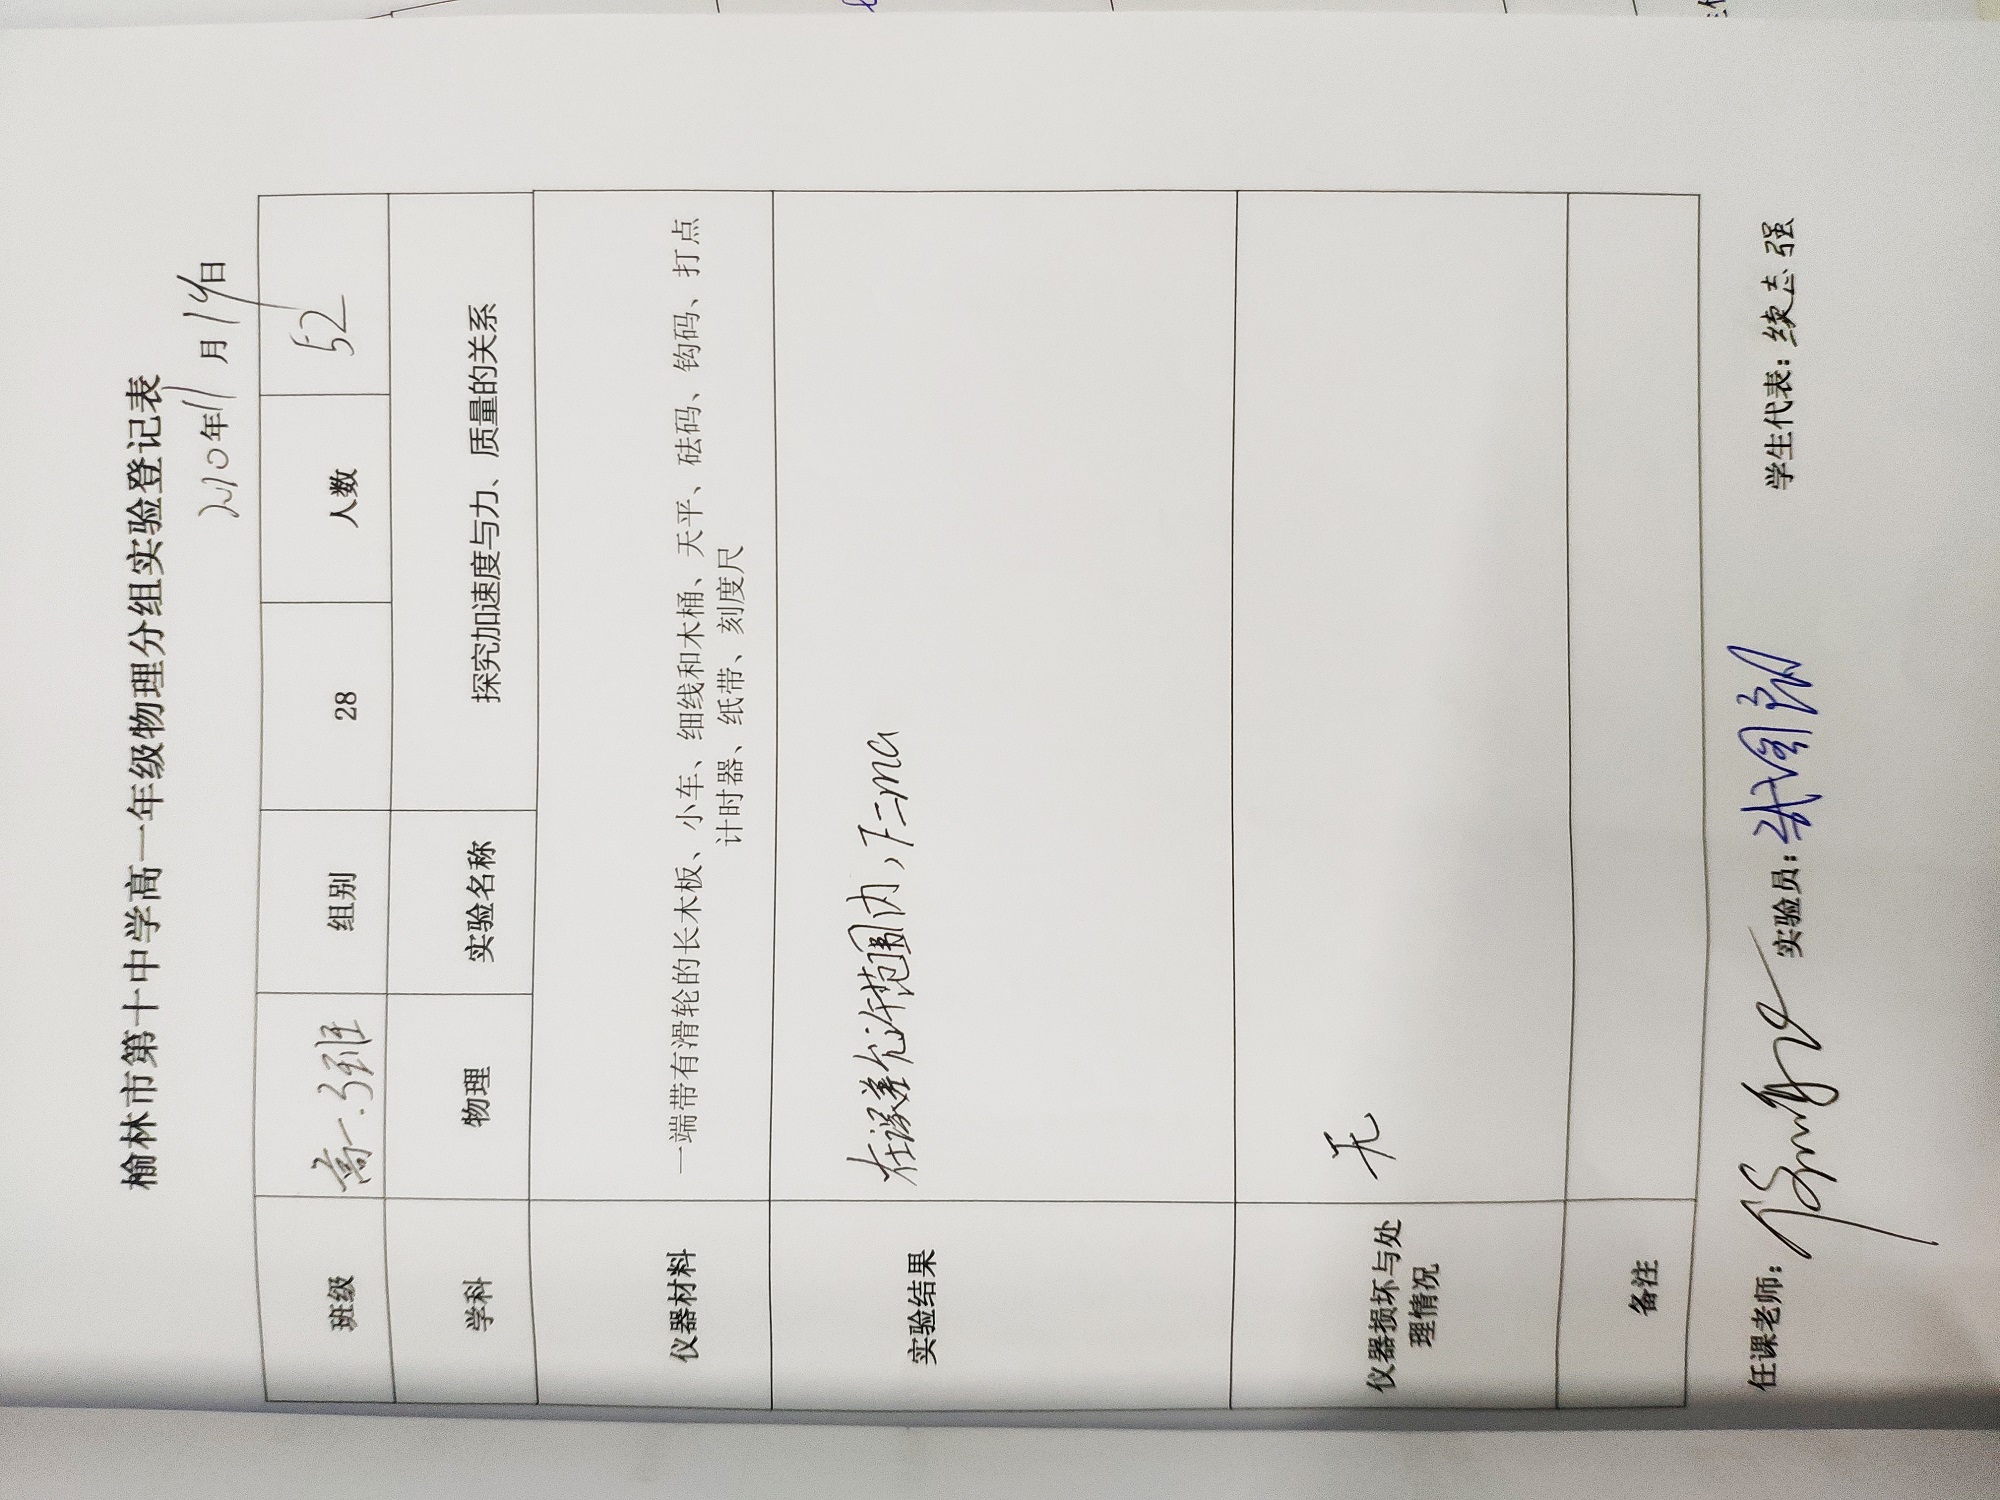 榆林市第十中学高一年级物理分组实验登记表
年11月14日
班级 高一.3班 组别 28 人数 52
学科 物理 实验名称 探究加速度与力、质量的关系
仪器材料 一端带有滑轮的长木板、小车、细线和木桶、天平、砝码、钩码、打点
计时器、纸带、刻度尺
实验结果 在误差允许范围内，F=ma
仪器损坏与处
理情况 无
备注
任课老师： 实验员： 学生代表：续志强